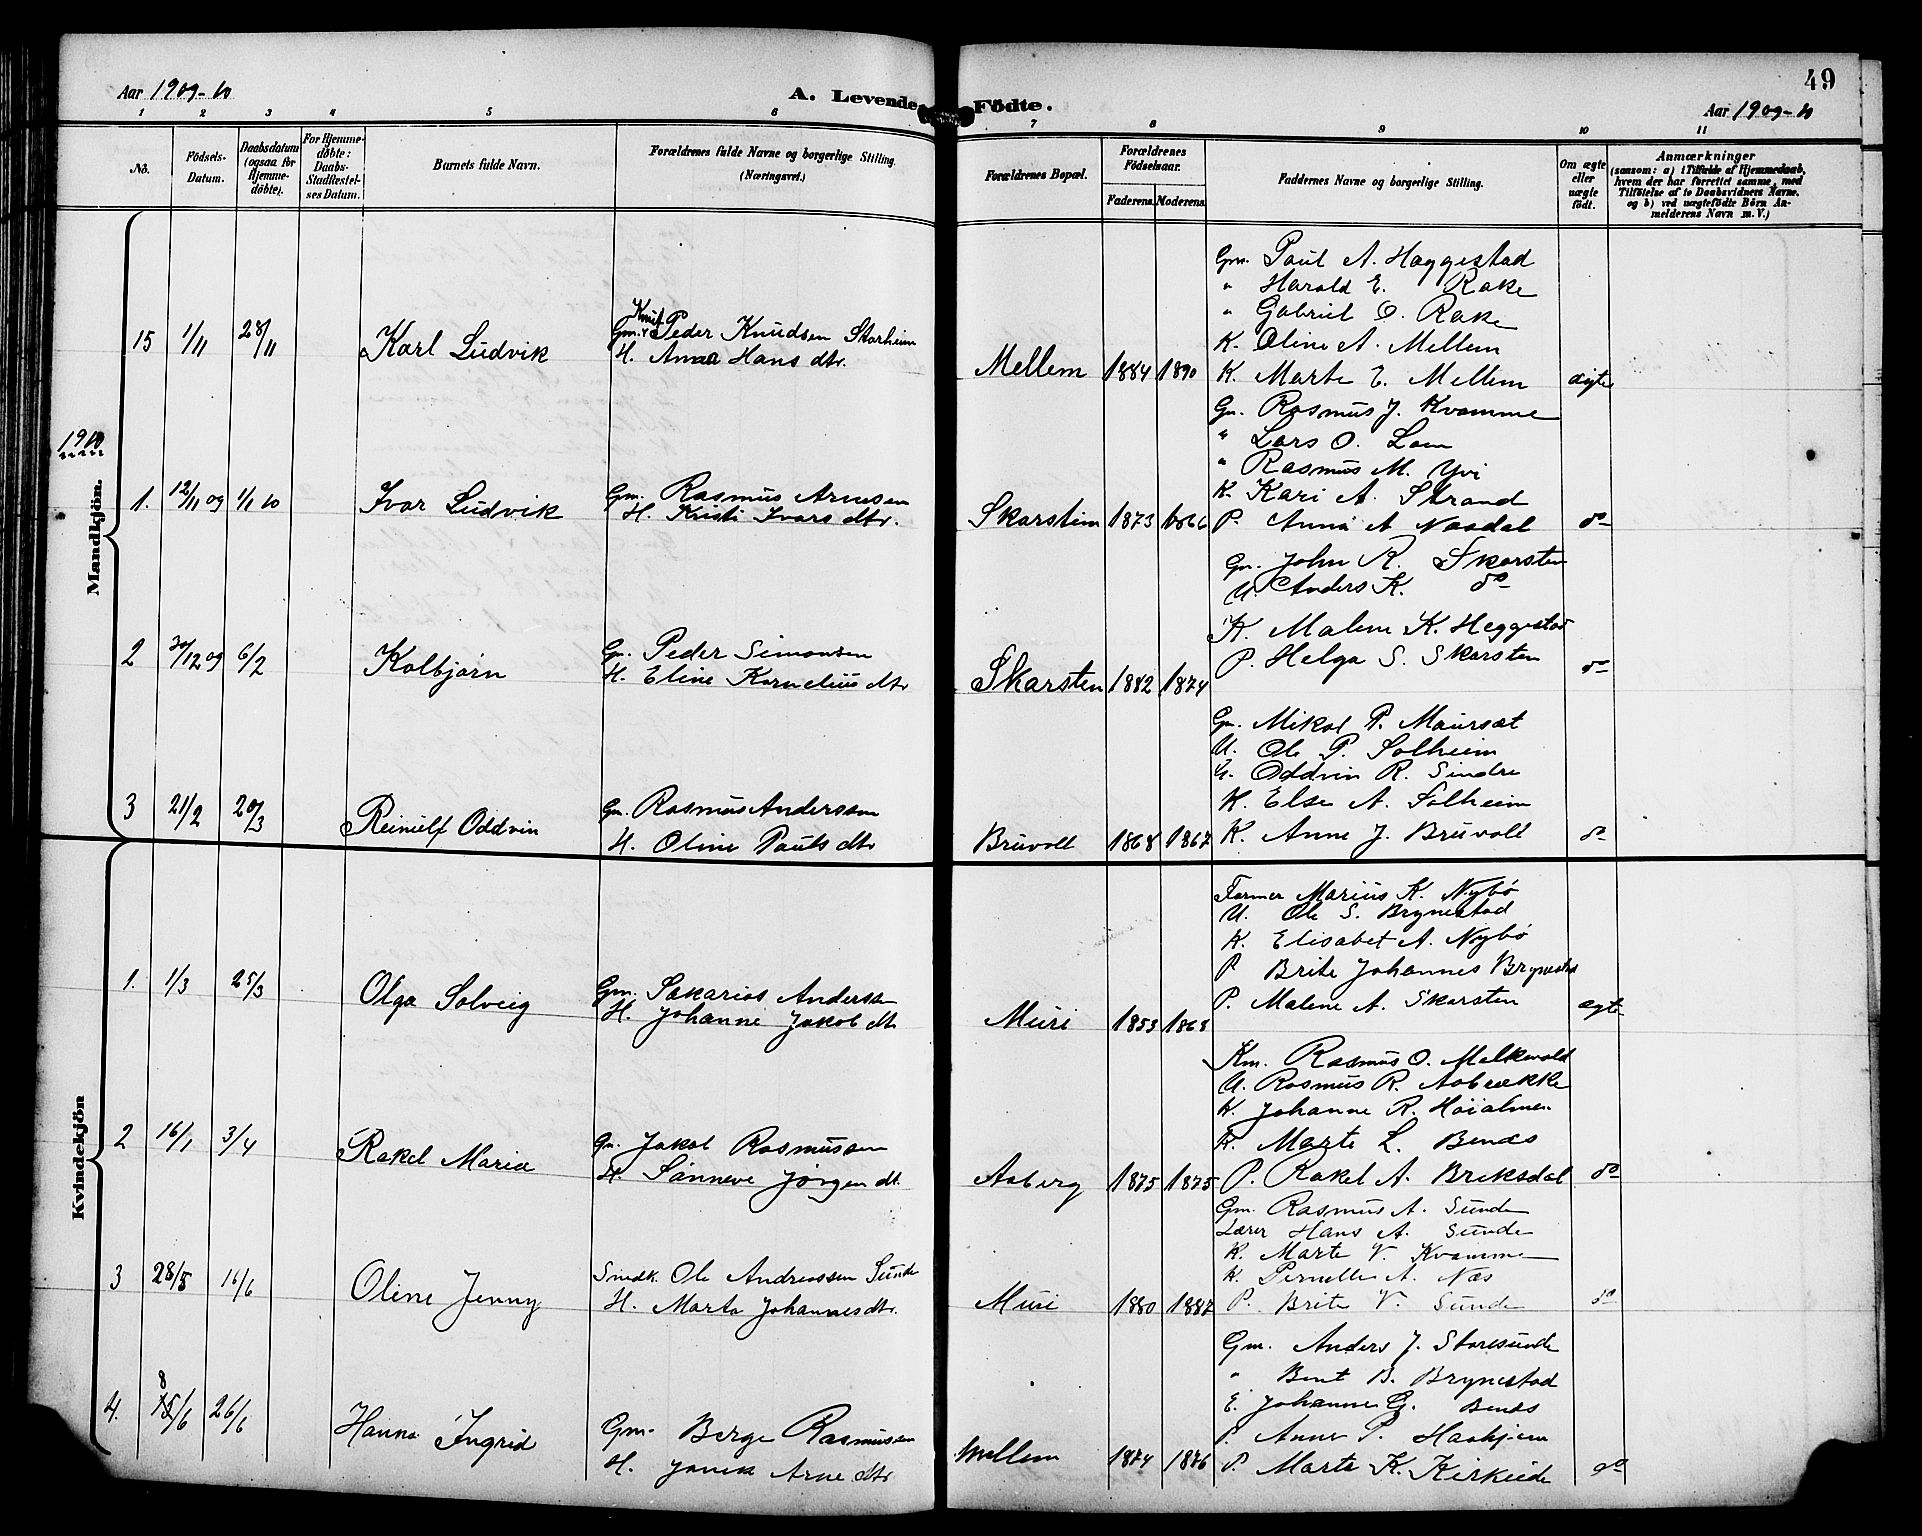 Aar 1909-10
A. Levende Födte.
49
Aar 1909-10
1 2 3 4 5 6 7 8 9 10 11
No.
Födsels-Datum.
Daabsdatum (ogsaa for Hjemmedöbte).
For Hjemmedöbte: Daabs-Stadfæstelses Datum.
Barnets fulde Navn.
Forældrenes fulde Navne og borgerlige Stilling.
(Næringsvei.)
Forældrenes Bopæl.
Forældrenes Födselsaar.
Faderens. Moderens.
Faddernes Navne og borgerlige Stilling.
Om ægte eller uægte födt.
Anmærkninger
(saasom: a) i Tilfælde af Hjemmedaab,
hvem der har forrettet samme, med
Tilföielse af to Daabsvidners Navne.
og b) ved uægtefödte Börn Anmelderens Navn m. V.)
Mandkjön.
15 1/11 28/11 Karl Ludvik
Gm. Peder Knudsen Storheim
H. Anna Hans dtr.
Mellem 1884 1890
Gm. Paul A. Haggestad
" Harald E. Rake
" Gabriel O. Rake
K. Oline A. Mellem
K. Marte E. Mellem
ægte
1910
1. 12/11 09 1/1 10 Ivar Ludvik
Gm. Rasmus Arnesen
H. Kristi Ivars dtr.
Skarstein 1873 1866
Gm. Rasmus J. Kvamme
" Lars O. Loen
" Rasmus M. Yvi
K. Kari A. Strand
P. Anna A Naadal
do
2 30/12 09 6/2 Kolbjørn
Gm. Peder Simonsen
H. Eline Kornelius dtr
Skarsten 1882 1874
Gm. John R. Skarsten
U. Anders K. do
K. Malene K. Heggestad
P. Helga S. Skarsten
do
3 21/2 20/3 Reinulf Oddvin
Gm. Rasmus Anderssen
H. Oline Pauls dtr
Bruvoll 1868 1867
Gm. Mikal P. Maursæt
U. Ole P. Solheim
U. Oddvin R. Sindre
K. Else A. Solheim
K. Anne J. Bruvoll
do
Kvindekjön
1. 1/3 25/3 Olga Solveig
Gm. Sakarias Anderssen
H. Johanne Jakob dtr
Muri 1853 1868
Farmer Marius K. Nybø
U. Ole S. Brynestad
K. Elisabet A. Nybø
P. Brite Johannes Brynestad
P. Malene A. Skarsten
ægte
2 16/1 3/4 Rakel Maria
Gm. Jakob Rasmussen
H. Sønneve Jørgen dt.
Aaberg 1875 1875
Km. Rasmus O. Melkevold
U. Rasmus R. Aabrekke
K. Johanne R. Høialmen
K. Marte L. Bends
P. Rakel A. Briksdal
do
3 28/5 16/6 Oline Jenny
Snedk. Ole Andreassen Sunde
H. Marta Johannes dtr.
Muri 1880 1887
Gm. Rasmus A. Sunde
Lærer Hans A. Sunde
K. Marte V. Kvamme
K. Pernelle A. Næs
P. Brite V. Sunde
do
4. 8/6 26/6 Hanna Ingrid
Gm. Berge Rasmussen
H. Arne dtr
Mellem 1874 1876
Gm. Anders J. Storesunde
" Bent B. Brynestad
E. Johanne G. Bends
P. Anne P. Haahjem
P. Marte K. Kirkeide
do